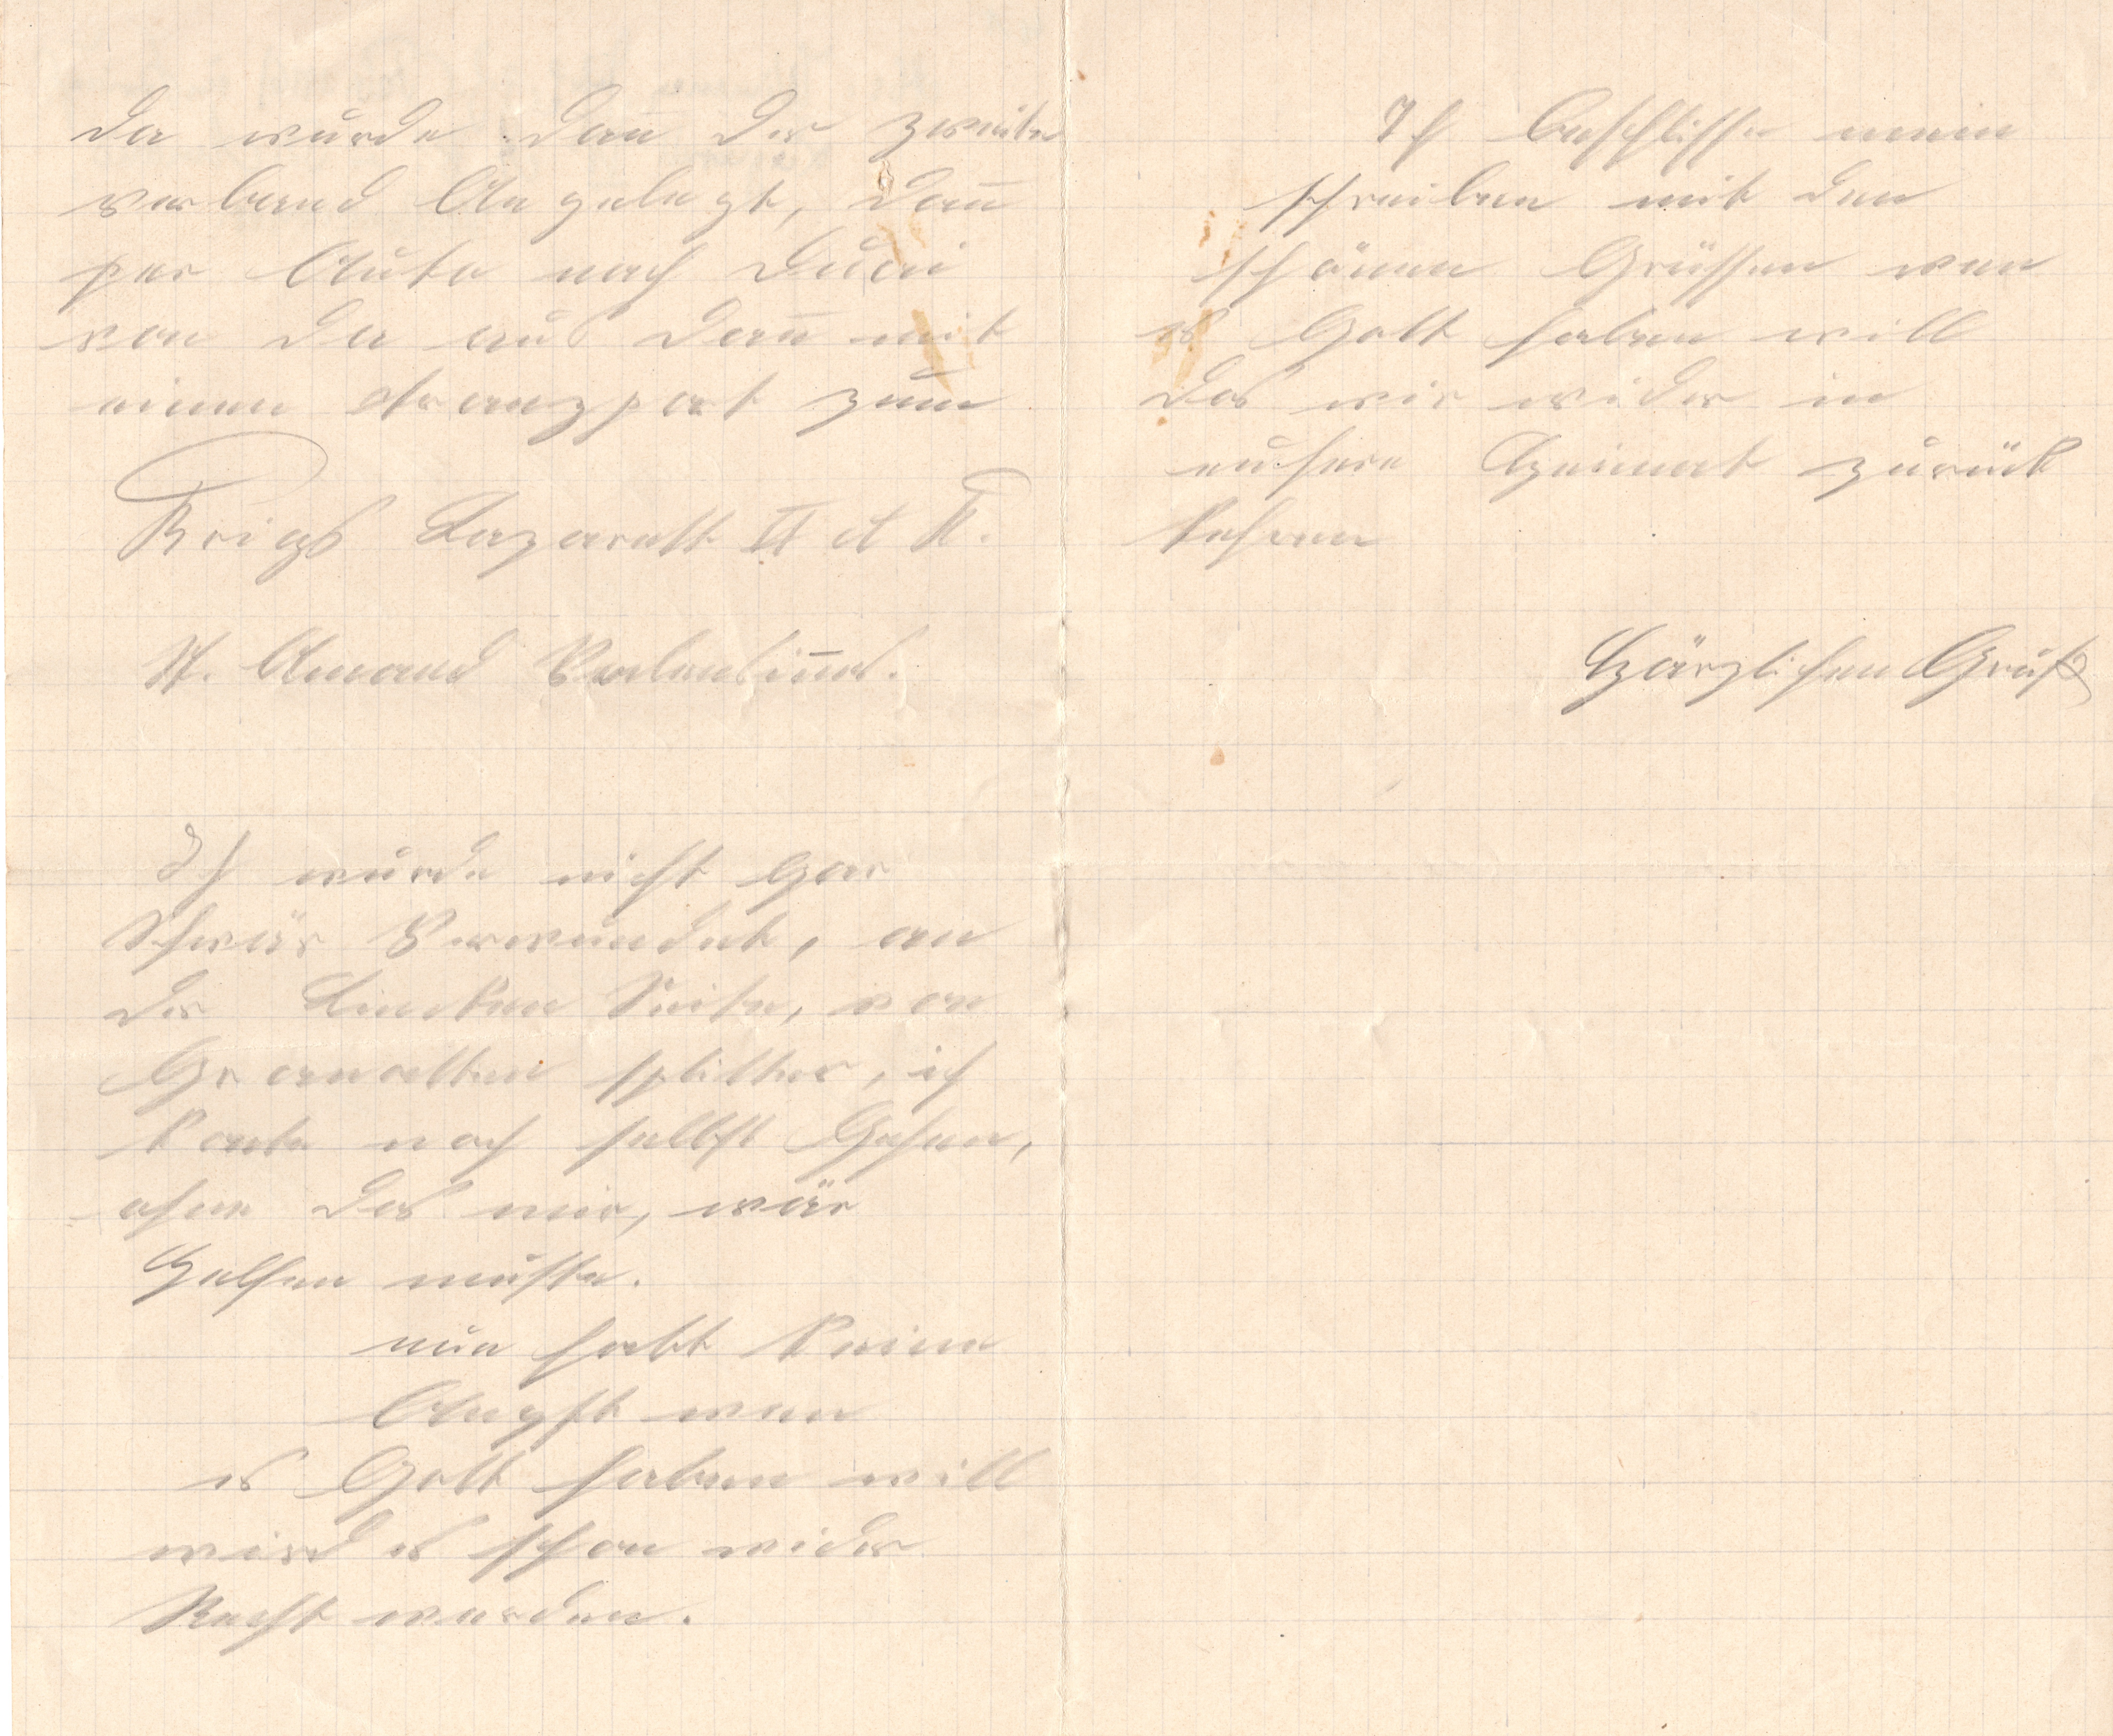 da wurde dann der zweite
verband Angelegt, dann
per Auto nach Duai
von da aus dann mit
einen tranzport zum
Krigs Lazarett II et K.
St. Amand Valensinnes.
Ich wurde nicht Gar
Schwär Verwundet, an
der Lincken Seite, von
Granatten splitter, ich
konte noch selbst Gehen,
ohne das mir, wär
Helfen muste.
nun habt keine
Angst wen
es Gott haben will
wird es schon wider
Recht werden.
Ich beschlisse mein
schreiben mit den
schönen Grüssen wen
es Gott haben will
das wir wider in
unsere Heimat zurück
kehren
Härzlichen Gruß